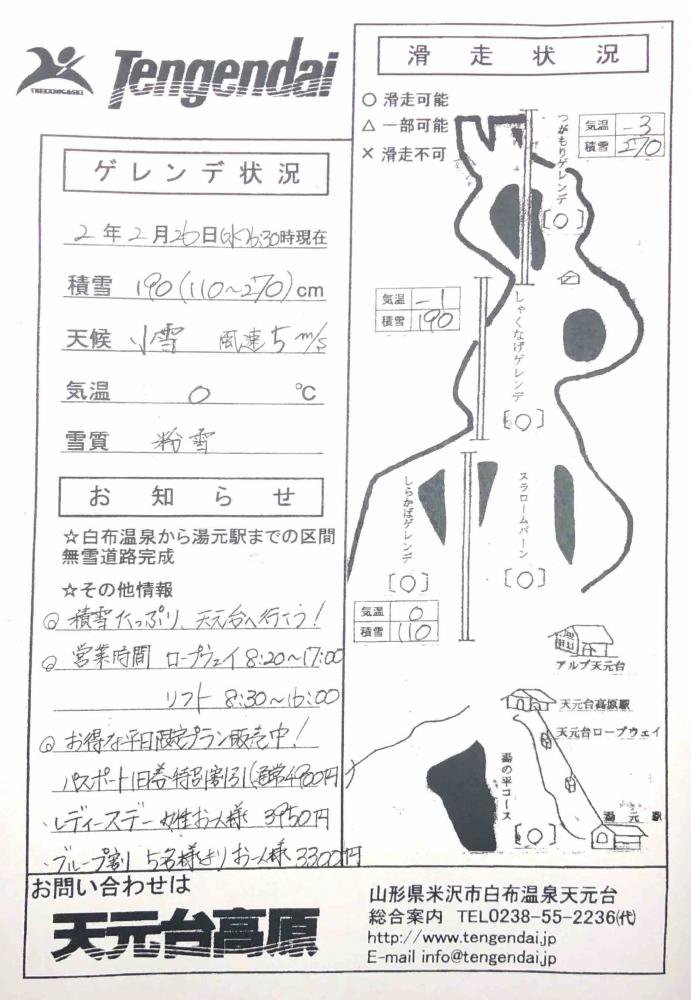 TREKKING&SKI
Tengendai
ゲレンデ状況
2年2月26日(水)6:30時現在
積雪 190(110〜270)cm
天候 小雪 風速5m/s
気温 0 ℃
雪質 粉雪
お知らせ
☆白布温泉から湯元駅までの区間
無雪道路完成
☆その他情報
◎積雪たっぷり、天元台へ行こう!
◎営業時間 ロープウェイ 8:20〜17:00
リフト 8:30〜16:00
◎お得な平日限定プラン販売中!
パスポート1日券特別割引(通常4980円)
・レディースデー 女性お一人様 3950円
・グループ割 5名様より お一人様 3300円
滑走状況
○ 滑走可能
△ 一部可能
× 滑走不可
つがもりゲレンデ
[○]
気温 -3
積雪 270
気温 -1
積雪 190
しゃくなげゲレンデ
[○]
しらかばゲレンデ
[○]
スラロームバーン
[○]
気温 0
積雪 110
アルブ天元台
天元台高原駅
天元台ロープウェイ
湯の平コース
[○]
湯元駅
お問い合わせは
天元台高原
山形県米沢市白布温泉天元台
総合案内 TEL0238-55-2236(代)
http://www.tengendai.jp
E-mail info@tengendai.jp